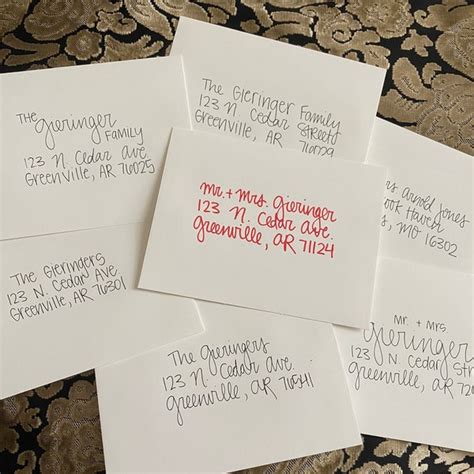 The
Gieringer
Family
123 N. Cedar Ave.
Greenville, AR 76025
The Gieringer Family
123 N. Cedar Street
Greenville, AR
Mr. + Mrs. Gieringer
123 N. Cedar Ave.
Greenville, AR 71124
Arnold Jones
Haven
MO 16302
The Gieringers
123 N. Cedar Ave
Greenville, AR 76301
The Gieringers
123 N. Cedar Ave.
Greenville, AR
Mr. + Mrs.
Gieringer
123 N. Cedar
Greenville, AR